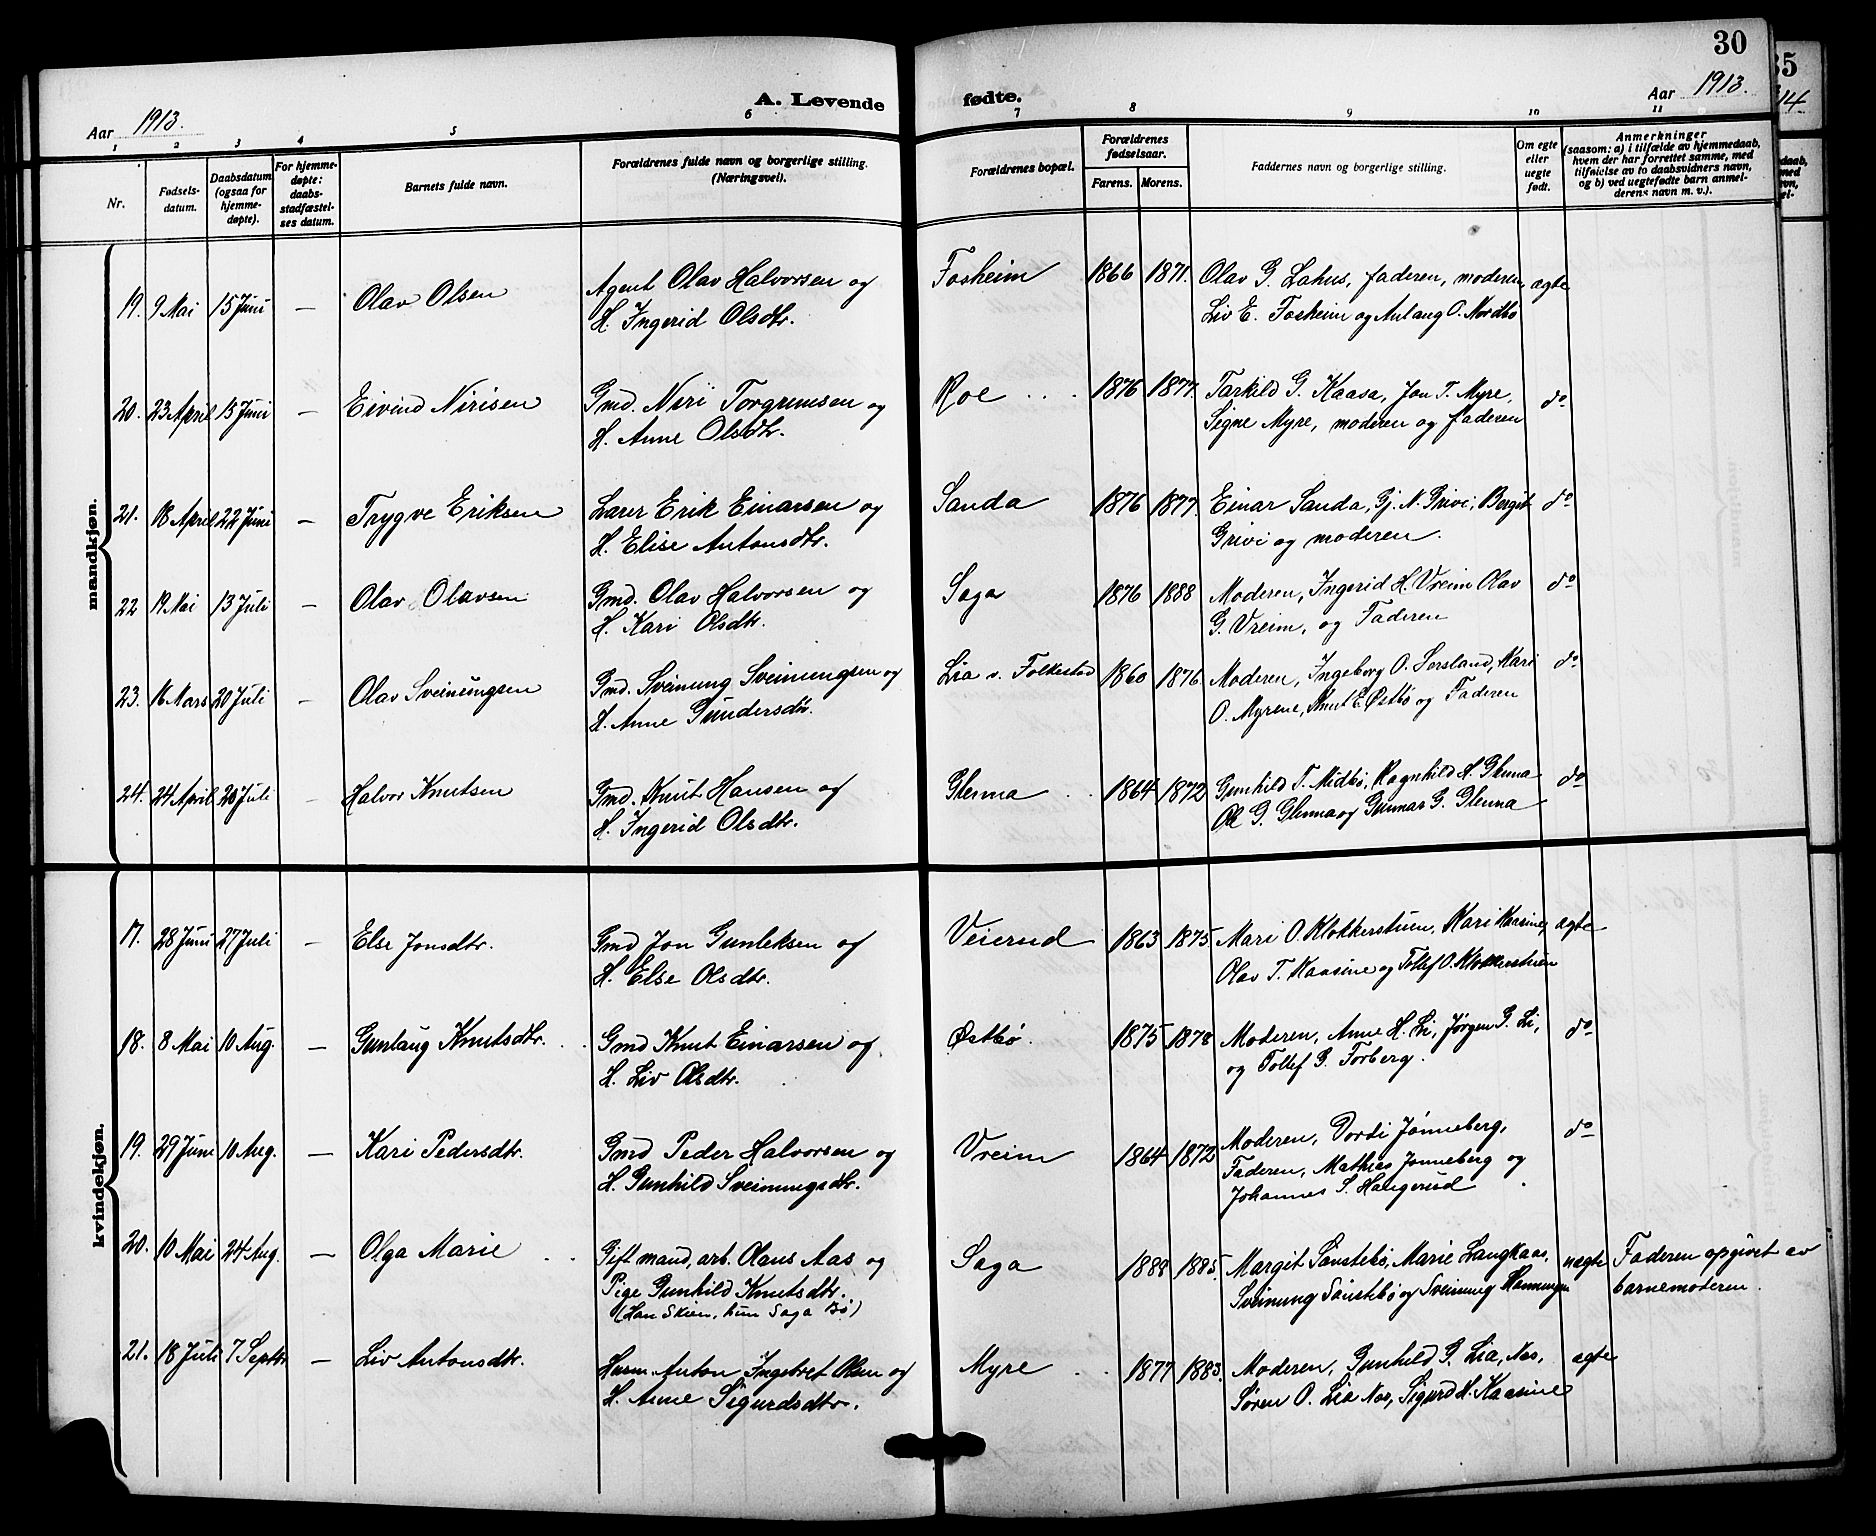 30
35
14
A. Levende fødte.
Aar 1913.
Aar 1913.
1 2 3 4 5 6 7 8 9 10 11
Nr.
Fødsels-
datum.
Daabsdatum
(ogsaa for
hjemme-
døpte).
For hjemme-
døpte:
daabs-
stadfæstel-
ses datum.
Barnets fulde navn.
Forældrenes fulde navn og borgerlige stilling.
(Næringsvei).
Forældrenes bopæl.
Forældrenes
fødselsaar.
Farens. Morens.
Faddernes navn og borgerlige stilling.
Om egte
eller
uegte
født.
Anmerkninger
(saasom: a) i tilfælde av hjemmedaab,
hvem der har forrettet samme, med
tilføielse av to daabsvidners navn,
og b) ved uegtefødte barn anmel-
derens navn m. v.).
mandkjøn.
19. 9 Mai 15 Juni — Olav Olsen Agent Olav Halvorsen og Fosheim 1866 1871. Olav G. Lahus, faderen, moderen, ægte
H. Ingerid Olsdtr. Liv E. Fosheim og Aslaug O. Nordbø
20. 23 April 15 Juni — Eivind Nirisen Gmd. Niri Torgrimsen og Roe 1876 1877. Tarkild G. Kaasa, Jon T. Myre, do
H. Anne Olsdtr. Signe Myre, moderen og faderen
21. 18 April 22 Juni — Trygve Eriksen Lærer Erik Einarsen og Sanda 1876 1877. Einar Sanda, Gj. N. Grivi, Bergit do
H. Elise Antonsdtr. Grivi og moderen.
22 19 Mai 13 Juli — Olav Olavsen Gmd. Olav Halvorsen og Saga 1876 1888 Moderen, Ingerid H. Vreim Olav do
H. Kari Olsdtr. G. Vreim, og Faderen
23. 16 Mars 20 Juli — Olav Sveinungsen Gmd. Sveinung Sveinungsen og Lia v. Folkestad 1860 1876. Moderen, Ingeborg O. Sersland, Kari do
H. Anne Gundersdtr. O. Myrene, Knut E. Østbø og Faderen
24. 24 April 20 Juli — Halvor Knutsen Gmd. Knut Hansen og Glenna 1864 1872 Gunhild T. Midbø, Ragnhild H. Glenna do
H. Ingerid Olsdtr. Ole G. Glenna og Gunnar G. Glenna
kvindekjøn.
17. 28 Juni 27 Juli — Else Jonsdtr. Gmd Jon Gunleksen og Veierud 1863 1875. Mari O. Klokkerstuen, Kari Kaasine, ægte
H. Else Olsdtr. Olav T. Kaasine og Tollef O. Klokkerstuen
18. 8 Mai 10 Aug. — Gunlaug Knutsdtr. Gmd Knut Einarsen og Østbø. 1875 1878 Moderen, Anne H. Li, Jørgen G. Li, do
H. Liv Olsdtr. og Tollef G. Forberg.
19. 29 Juni 10 Aug. — Kari Pedersdtr. Gmd Peder Halvorsen og Vreim 1864 1872 Moderen, Dordi Jønneberg, do
H. Gunhild Sveinungsdtr. Faderen, Mathias Jønneberg og
Johannes S. Haugerud
20. 10 Mai 24 Aug. — Olga Marie Gift mand, arb. Olaus Aas og Saga 1888 1885. Margit Sønstebø, Marie Langkaas, uægte Faderen opgivet av
Pige Gunhild Knutsdtr. Sveinung Sønstebø og Sveinung barnemoderen.
(Han Skien, hun Saga Bø)
21. 18 Juli 7 Septbr — Liv Antonsdtr. Husm. Anton Ingebret Olsen og Myre 1877 1883. Moderen, Gunhild G. Lia, Nes, ægte
H. Anne Sigurdsdtr. Søren O. Lia Nes, Sigurd H. Kaasine